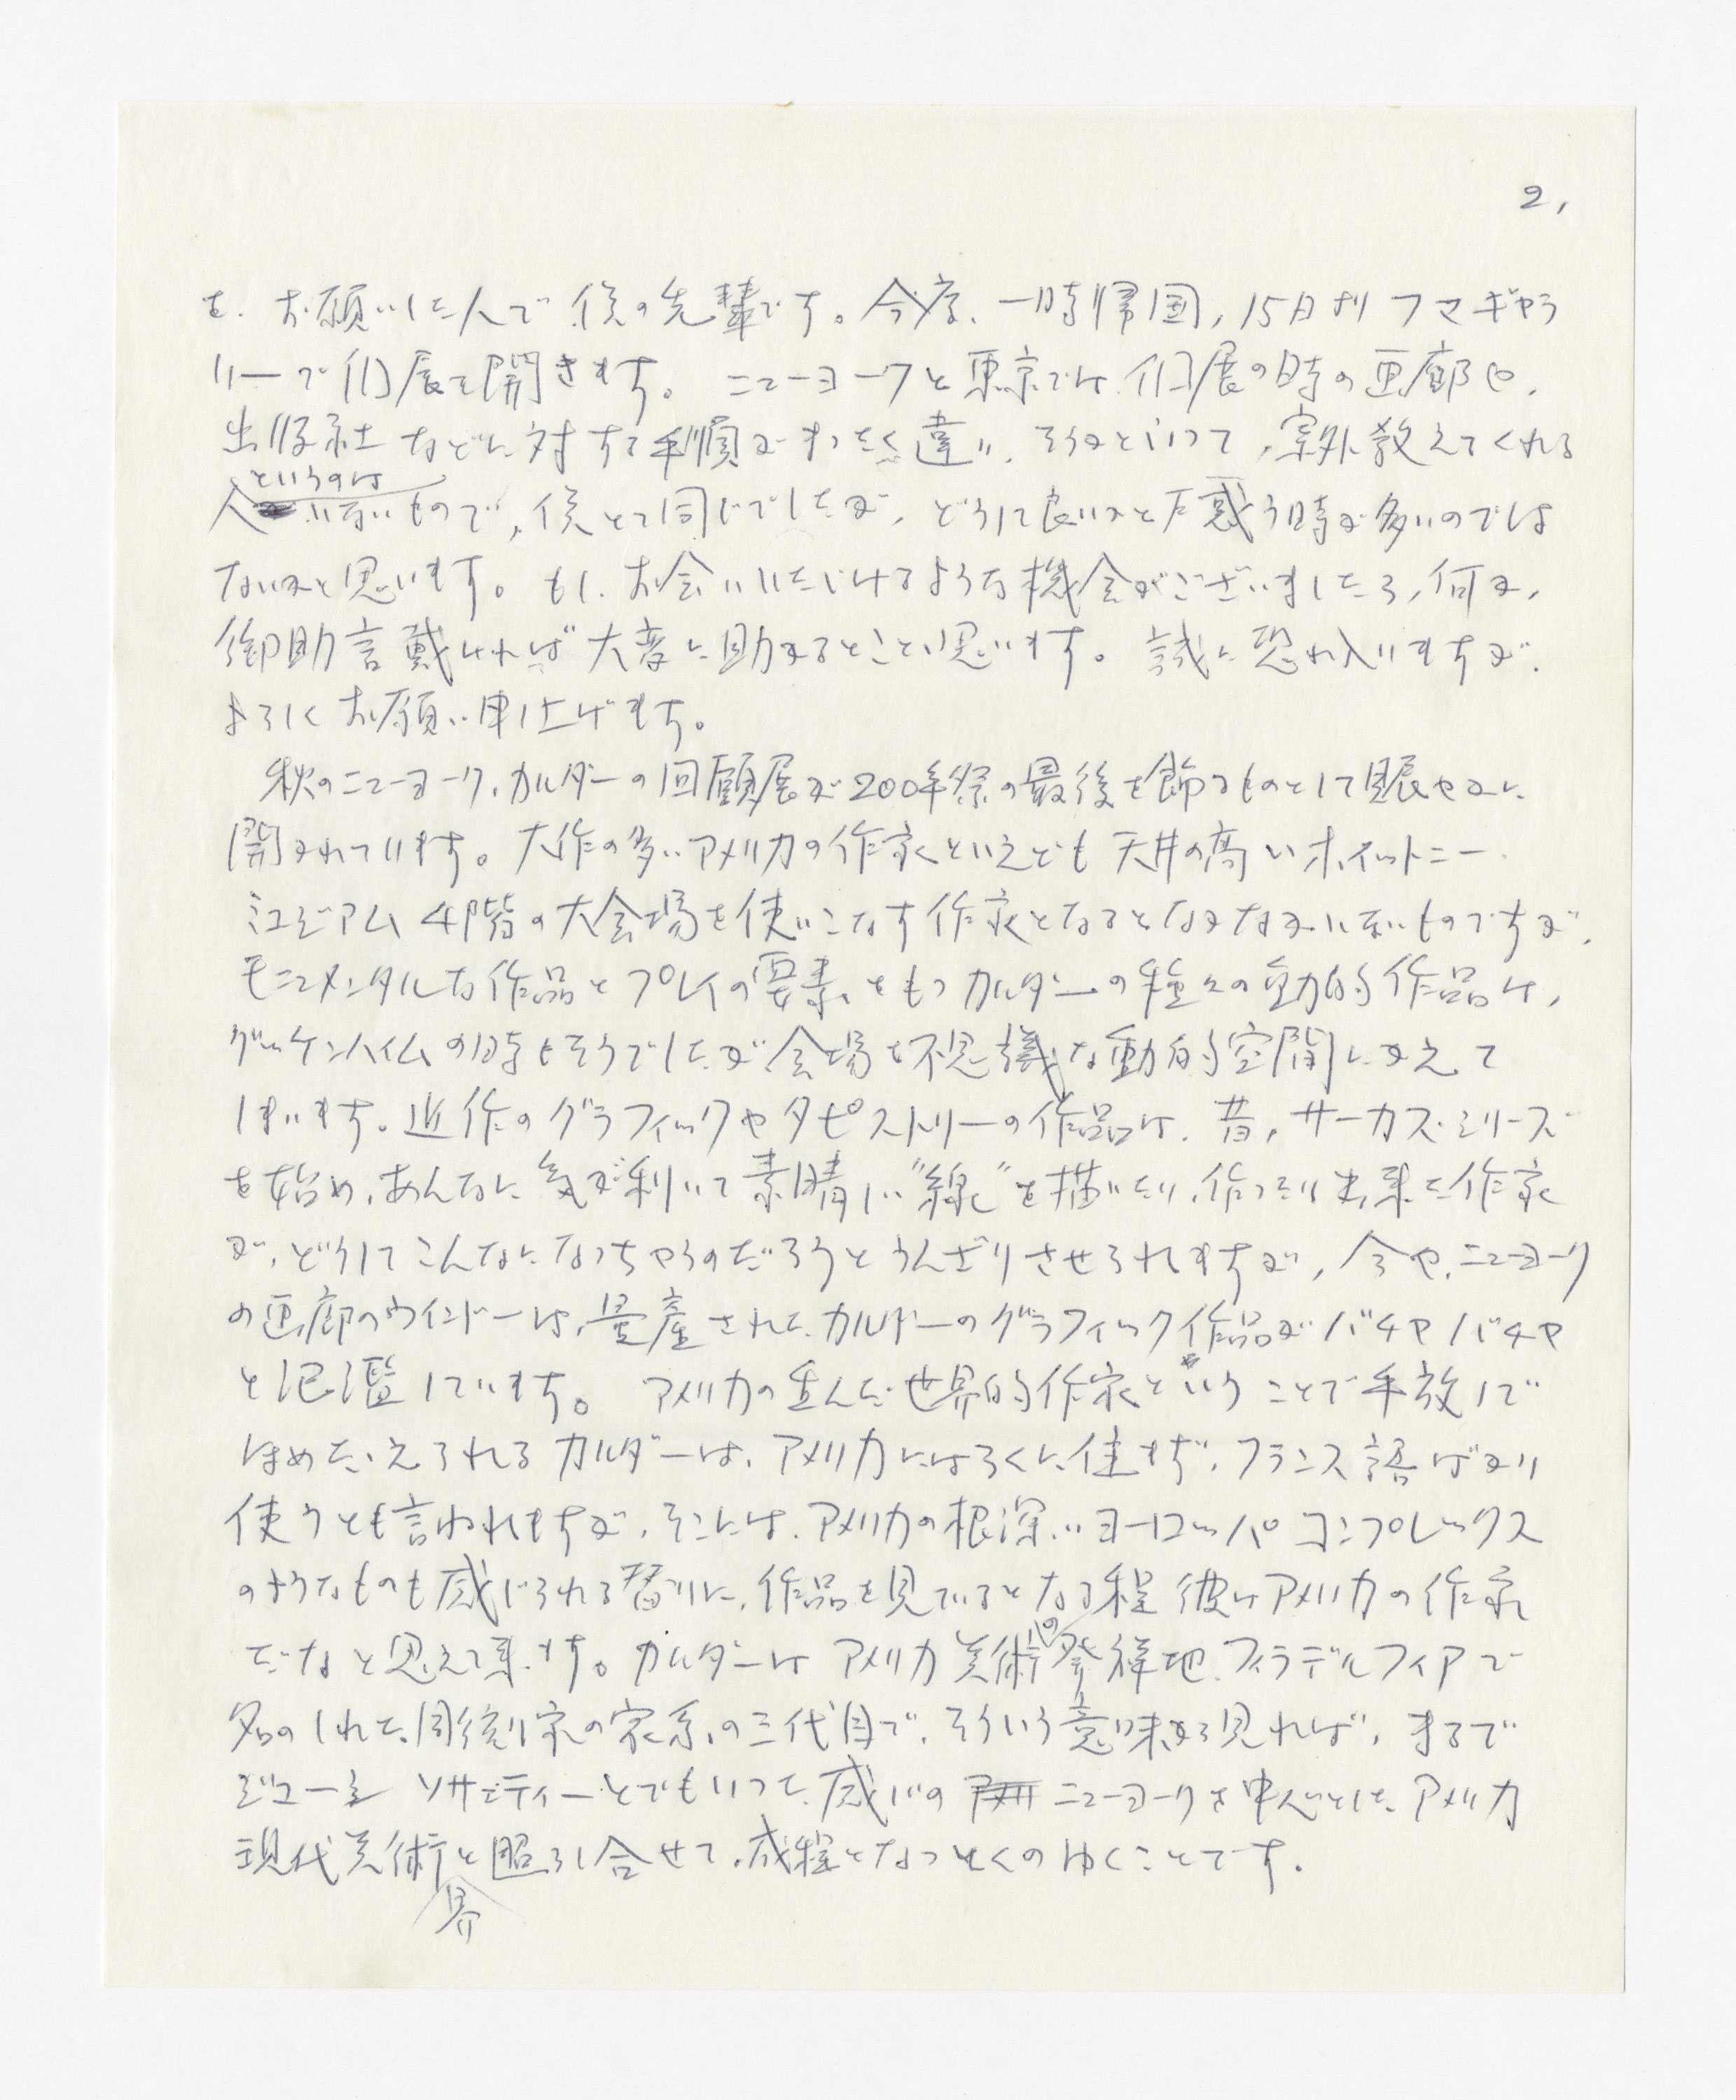 2,
を、お願いした人で僕の先輩です。今度、一時帰国，15日より フマギャラ
リーで個展を開きます。 ニューヨークと東京では個展の時の画廊や、
出版社などに対する手順がまったく違い、そうかといって，案外教えてくれる
人というのはいないもので，僕とて同じでしたが，どうして良いかと戸惑う時が多いのでは
ないかと思います。もし、お会いいただけるような機会がございましたら，何か，
御助言戴ければ大変に助かるとこと思います。 誠に恐れ入りますが、
よろしくお願い申し上げます。
秋のニューヨーク，カルダーの回顧展が200年祭の最後を飾るものとして賑やかに
開かれています。大作の多いアメリカの作家といえども 天井の高いホイットニー・
ミュジアム 4階の大会場を使いこなす作家となるとなかなかいないものですが、
モニュメンタルな作品とプレイの要素をもつカルダーの種々の動的作品は，
グッケンハイムの時もそうでしたが会場を不思議な動的空間にかえて
しまいます。近作のグラフィックやタピストリーの作品は、昔，サーカス・シリーズ
を始め，あんなに気が利いて素晴しい“線”を描いたり，作ったり出来た作家
が，どうしてこんなになっちゃうのだろうとうんざりさせられますが，今や，ニューヨーク
の画廊のウインドーは，量産されたカルダーのグラフィック作品がバチャバチャ
と氾濫しています。 アメリカの生んだ世界的作家ということで手放しで
ほめたたえられるカルダーは、アメリカにはろくに住まず，フランス語ばかり
使うとも言われますが，そこには，アメリカの根深いヨーロッパ コンプレックス
のようなものも感じられる替りに，作品を見ているとなる程 彼はアメリカの作家
だなと思えて来ます。カルダーは アメリカ美術の発祥地，フィラデルフィアで
名のしれた彫刻家の家系の三代目で，そういう意味から見れば，まるで
ジューシ ソサエティーとでもいった感じの ニューヨークを中心とした アメリカ
現代美術界と照らし合せて，成程となっとくのゆくことです．